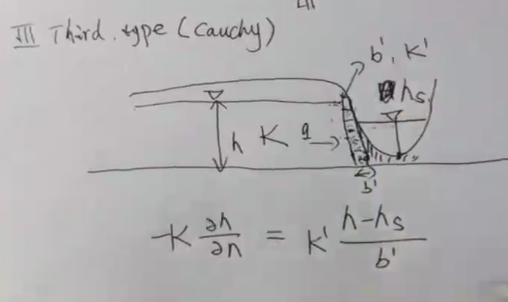 III Third type (Cauchy)
b', K'
hs
h K q
b'
-K ∂h/∂n = K' h-hs/b'